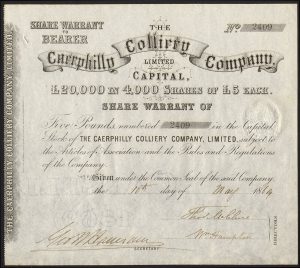 SHARE WARRANT
TO
BEARER
THE
No 2409
Caerphilly Colliery Company,
LIMITED
CAPITAL,
£20,000 IN 4,000 SHARES OF £5 EACH.
SHARE WARRANT OF
Five Pounds numbered 2409 in the Capital
Stock of THE CAERPHILLY COLLIERY COMPANY, LIMITED, subject to
the Articles of Association and the Rules and Regulations
of the Company.
Given under the Common Seal of the said Company,
the 10th day of May 1864
Wm Hampton
SECRETARY
DIRECTORS
THE CAERPHILLY COLLIERY COMPANY, LIMITED.